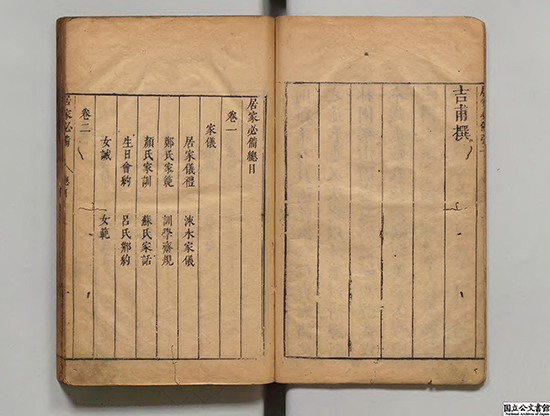 吉甫撰
居家必備總目
卷一
家儀
居家儀禮　涑水家儀
鄭氏家範　訓學齋規
顏氏家訓　蘇氏家語
生日會約　呂氏鄉約
女誡　女範
卷二
居家必備
国立公文書館
National Archives of Japan